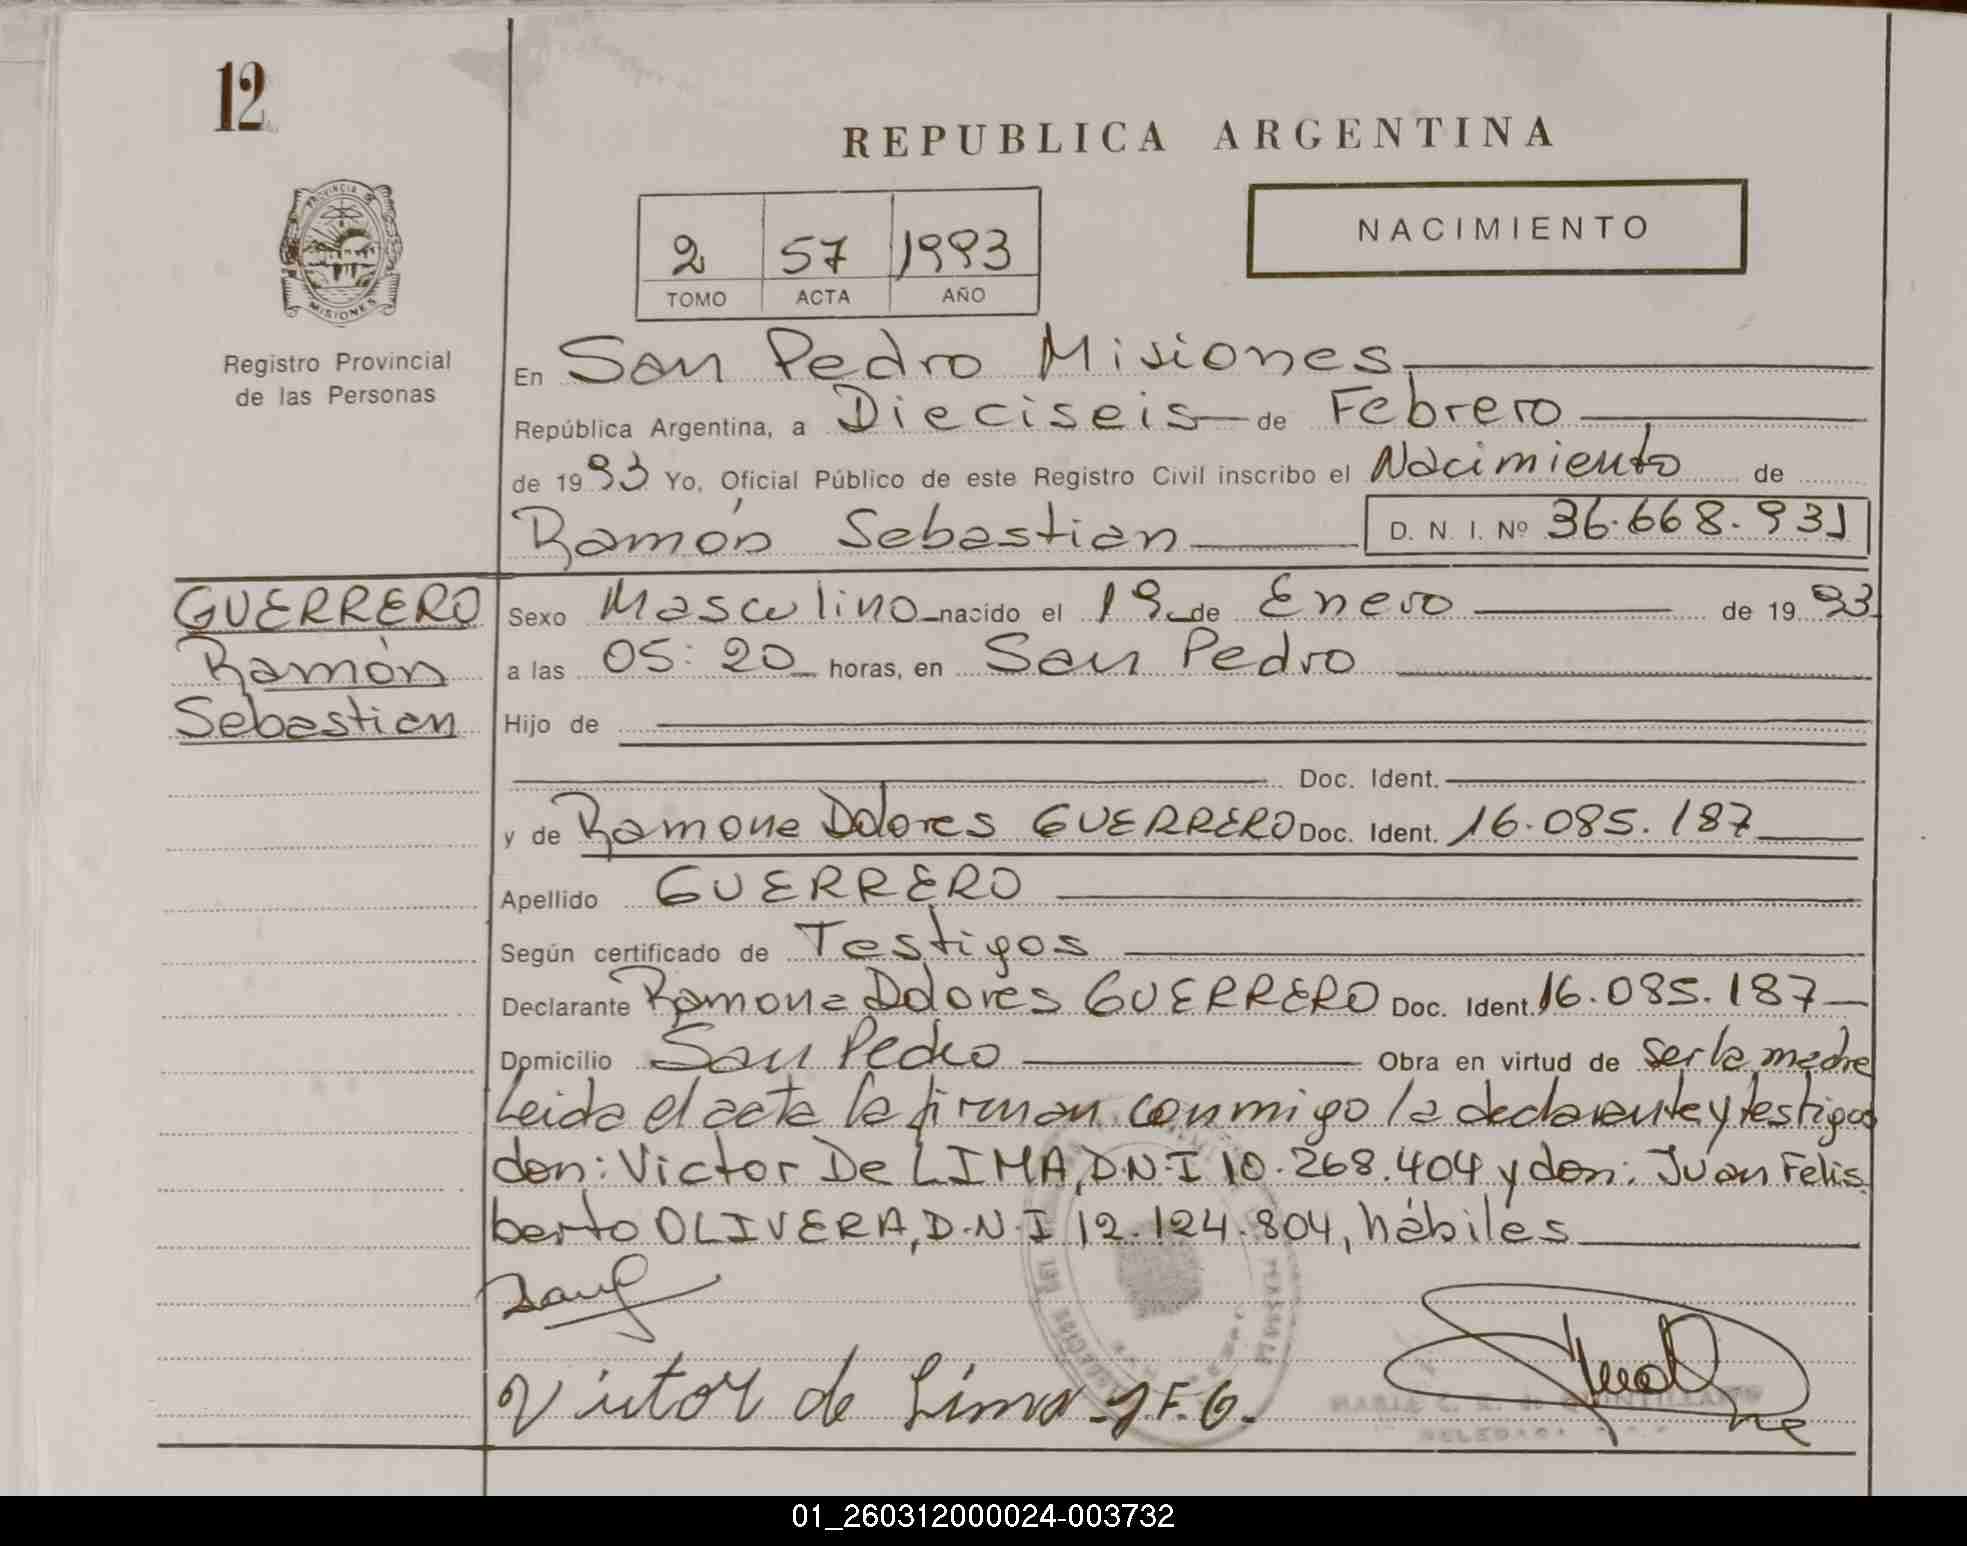 12
REPUBLICA ARGENTINA
PROVINCIA DE
MISIONES
Registro Provincial
de las Personas
2 57 1993
TOMO ACTA AÑO
NACIMIENTO
En San Pedro Misiones
República Argentina, a Dieciseis de Febrero
de 1993 Yo, Oficial Público de este Registro Civil inscribo el Nacimiento de
Ramón Sebastian D. N. I. Nº 36.668.931
GUERRERO
Ramón
Sebastian
Sexo Masculino nacido el 19 de Enero de 1993
a las 05:20 horas, en San Pedro
Hijo de
Doc. Ident.
y de Ramona Dolores GUERRERO Doc. Ident. 16.085.187
Apellido GUERRERO
Según certificado de Testigos
Declarante Ramona Dolores GUERRERO Doc. Ident. 16.085.187
Domicilio San Pedro Obra en virtud de ser la madre
Leida el acta la firman conmigo la declarante y testigos
don: Victor De LIMA, D.N.I 10.268.404 y don: Juan Felis
berto OLIVERA, D.N.I 12.124.804, hábiles
Victor de Lima J.F.O.
MARIA C. R. de
01_260312000024-003732